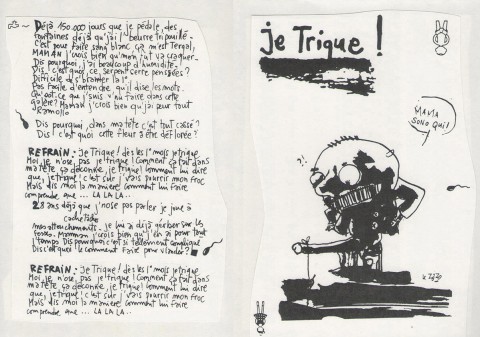 Déjà 150.000 jours que je pédale des
fontaines déjà qu'j'ai l'beurre tripouillé.
C'est pour faire sono blanc, ça m'est Tergal,
MAMAN j'crois bien qu'mon fut va craquer...
Dis pourquoi, j'ai beaucoup d'humidité!
Dis, c'est quoi, ce serpent cerre pensées?
Difficile de s'branler la
Pas facile d'entendre qu'il dise les mots.
Qu'est-ce que j'suis v'nu faire dans cette
galère? Maman j'crois bien qu'j'ai peur tout
Ramollo
Dis pourquoi, dans ma tête c'est tout cassé?
Dis! c'est quoi cette fleur à être déflorée?
REFRAIN: Je Trique! dès les 1° mois je trique
Moi, je n'ose, pas je Trique! Comment ça fait dans
ma tête, ça déconne, je trique! Comment lui dire
que, je trique! c'est sûr j'vais pourrir mon froc
Mais dis moi la manière comment lui faire
comprendre que ... LA LA LA..
28 ans déjà que j'nose pas parler je joue à
cache
mes attouchements, je lui ai déjà gerber sur les
Maman j'crois bien qu'j'en ai pour tout
l'temps Dis pourquoi c'est si tellement compliqué
Dis c'est quoi! le comment faire pour
REFRAIN: Je Trique! dès les 1° mois je trique
Moi, je n'ose, pas je Trique! Comment ça fait dans
ma tête, ça déconne, je trique! Comment lui dire
que, je trique! c'est sûr j'vais pourrir mon froc
Mais dis moi la manière comment lui faire
comprendre que ... LA LA LA..
je Trique!
MAMA
SONO QUI!
?!